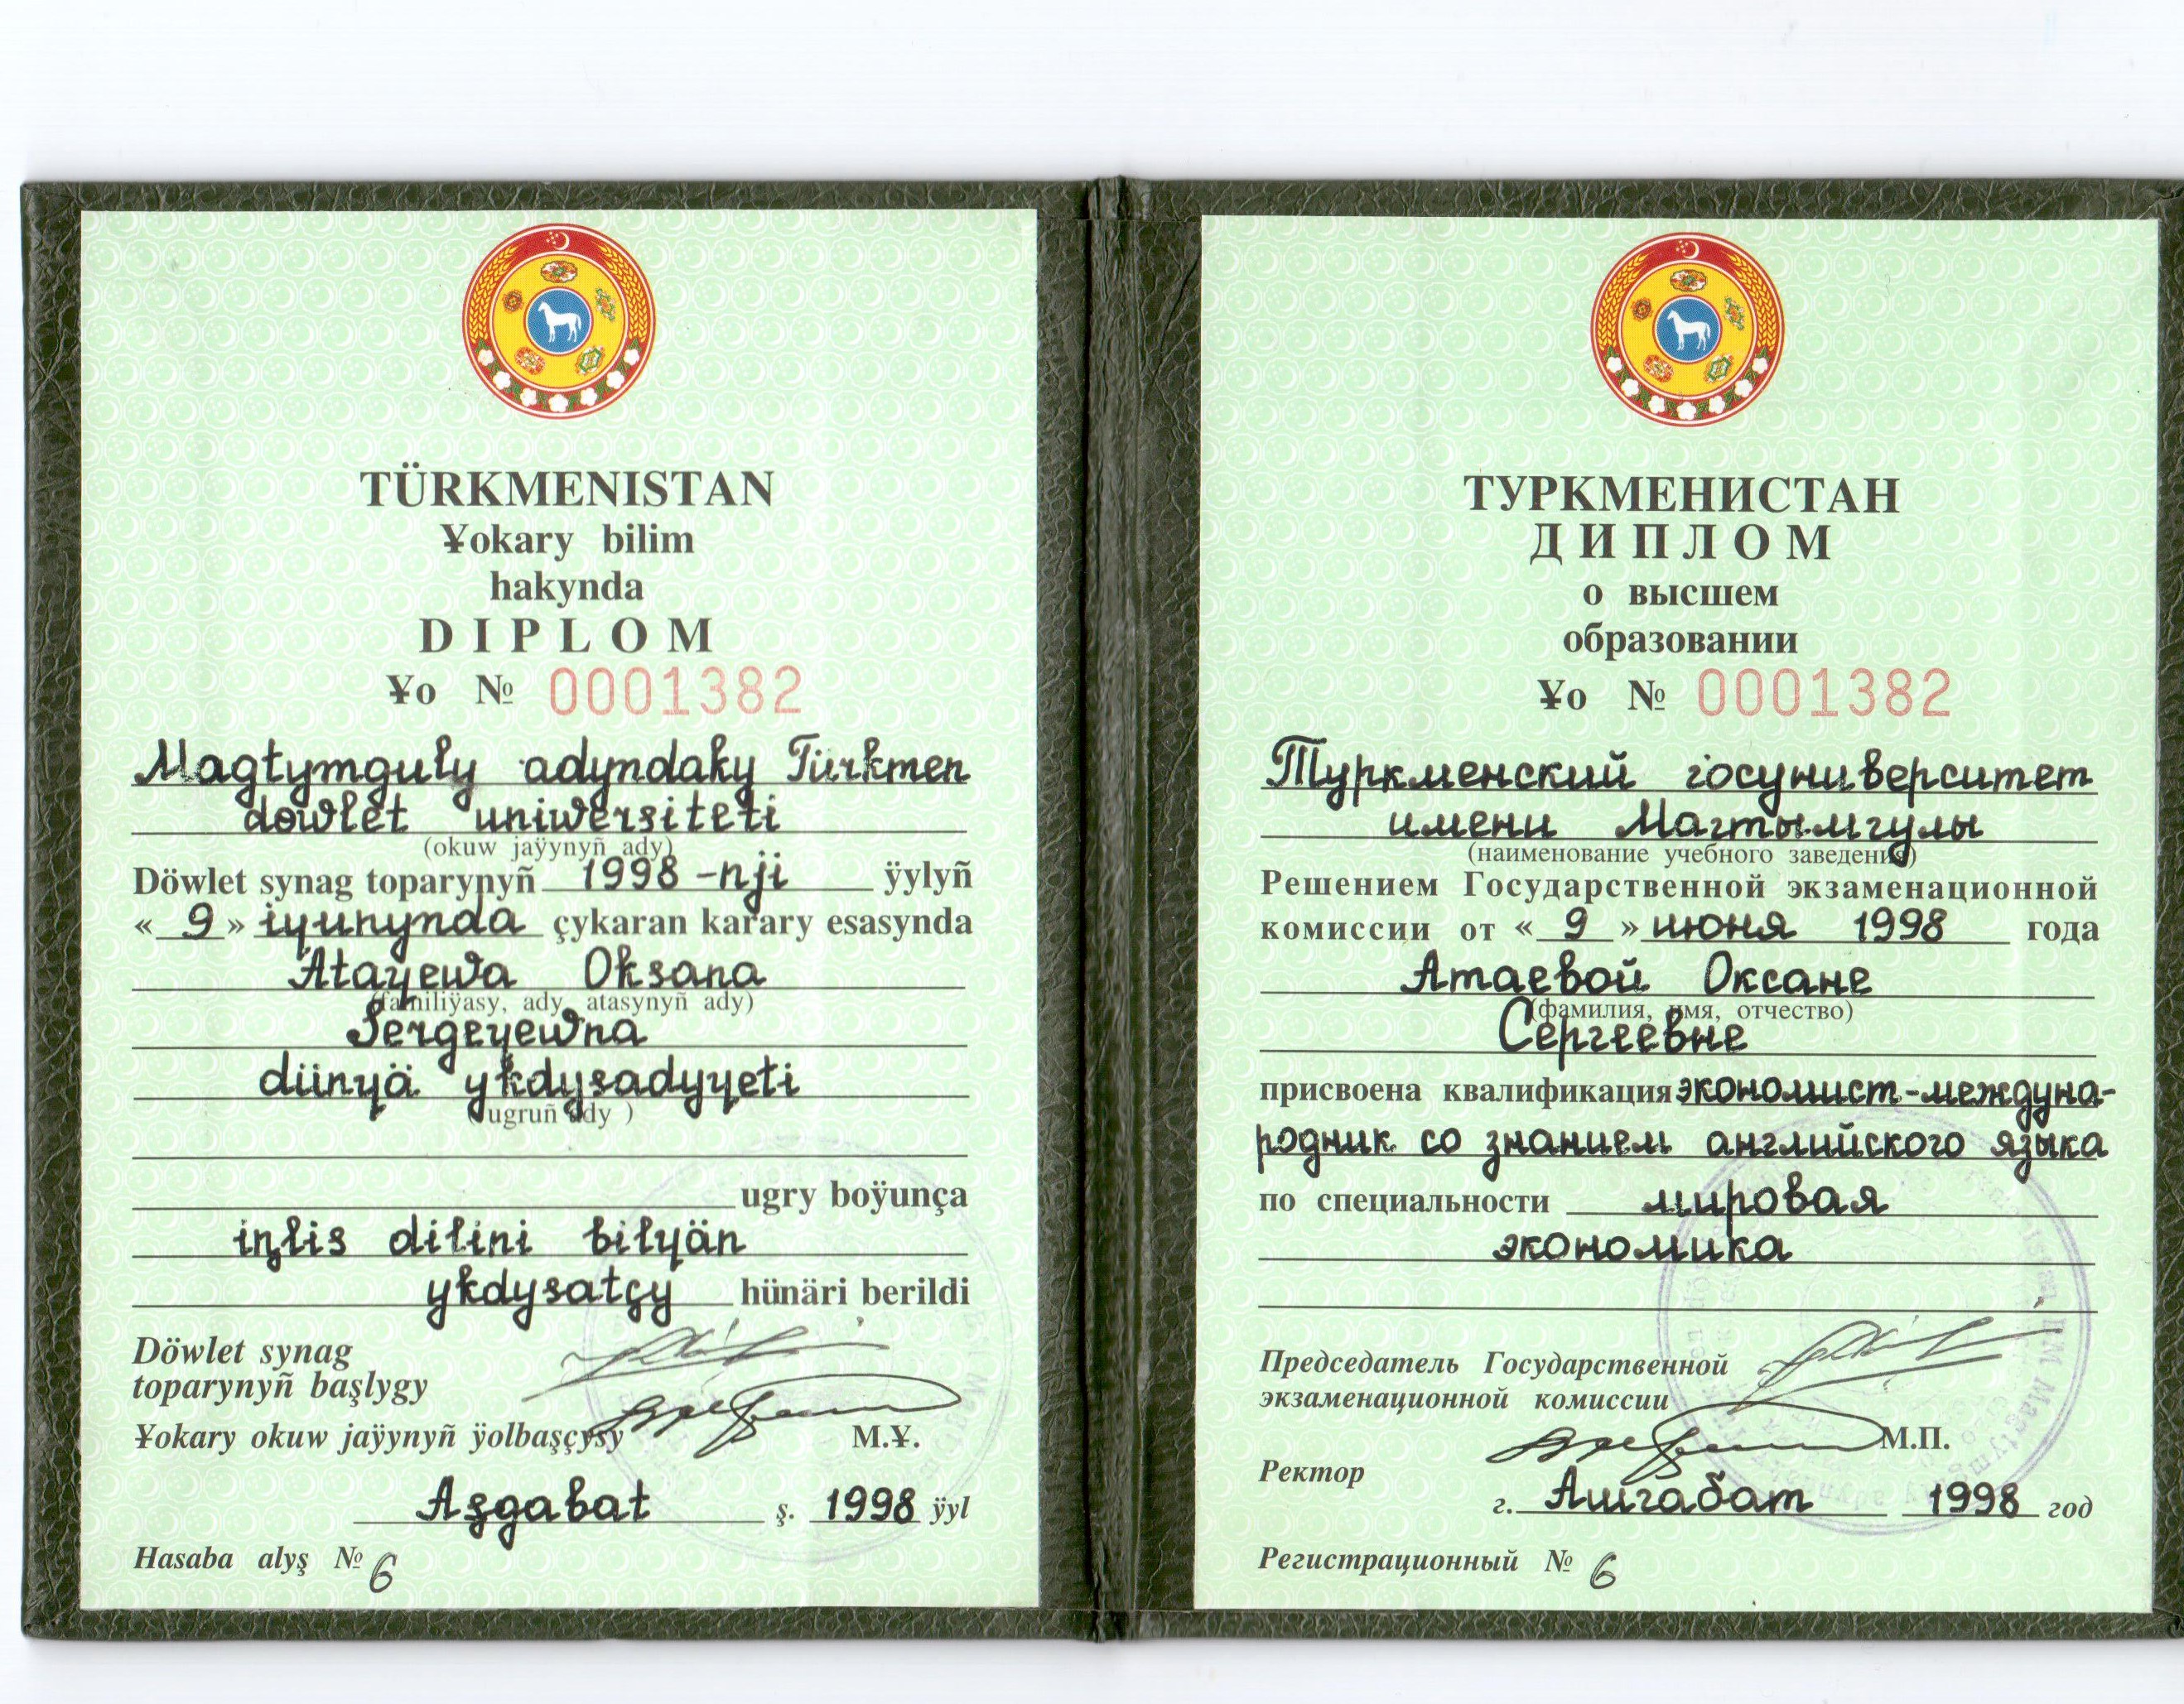 TÜRKMENISTAN
¥okary bilim
hakynda
DIPLOM
¥o № 0001382
Magtymguly adyndaky Türkmen
döwlet uniwersiteti
(okuw jaÿynyñ ady)
Döwlet synag toparynyñ 1998-nji ÿylyñ
« 9 » iyunynda çykaran karary esasynda
Atayewa Oksana
(familiÿasy, ady, atasynyñ ady)
Sergeyewna
dünyä ykdysadyyeti
(ugruñ ady )
ugry boÿunça
iņlis dilini bilyän
ykdysatçy hünäri berildi
Döwlet synag
toparynyñ başlygy
¥okary okuw jaÿynyñ ÿolbaşçysy M.¥.
Aşgabat ş. 1998 ÿyl
Hasaba alyş № 6
ТУРКМЕНИСТАН
ДИПЛОМ
о высшем
образовании
¥o № 0001382
Туркменский госуниверситет
имени Магтымгулы
(наименование учебного заведения)
Решением Государственной экзаменационной
комиссии от « 9 » июня 1998 года
Атаевой Оксане
(фамилия, имя, отчество)
Сергеевне
присвоена квалификация экономист-междуна-
родник со знанием английского языка
по специальности мировая
экономика
Председатель Государственной
экзаменационной комиссии
М.П.
Ректор
г. Ашгабат 1998 год
Регистрационный № 6